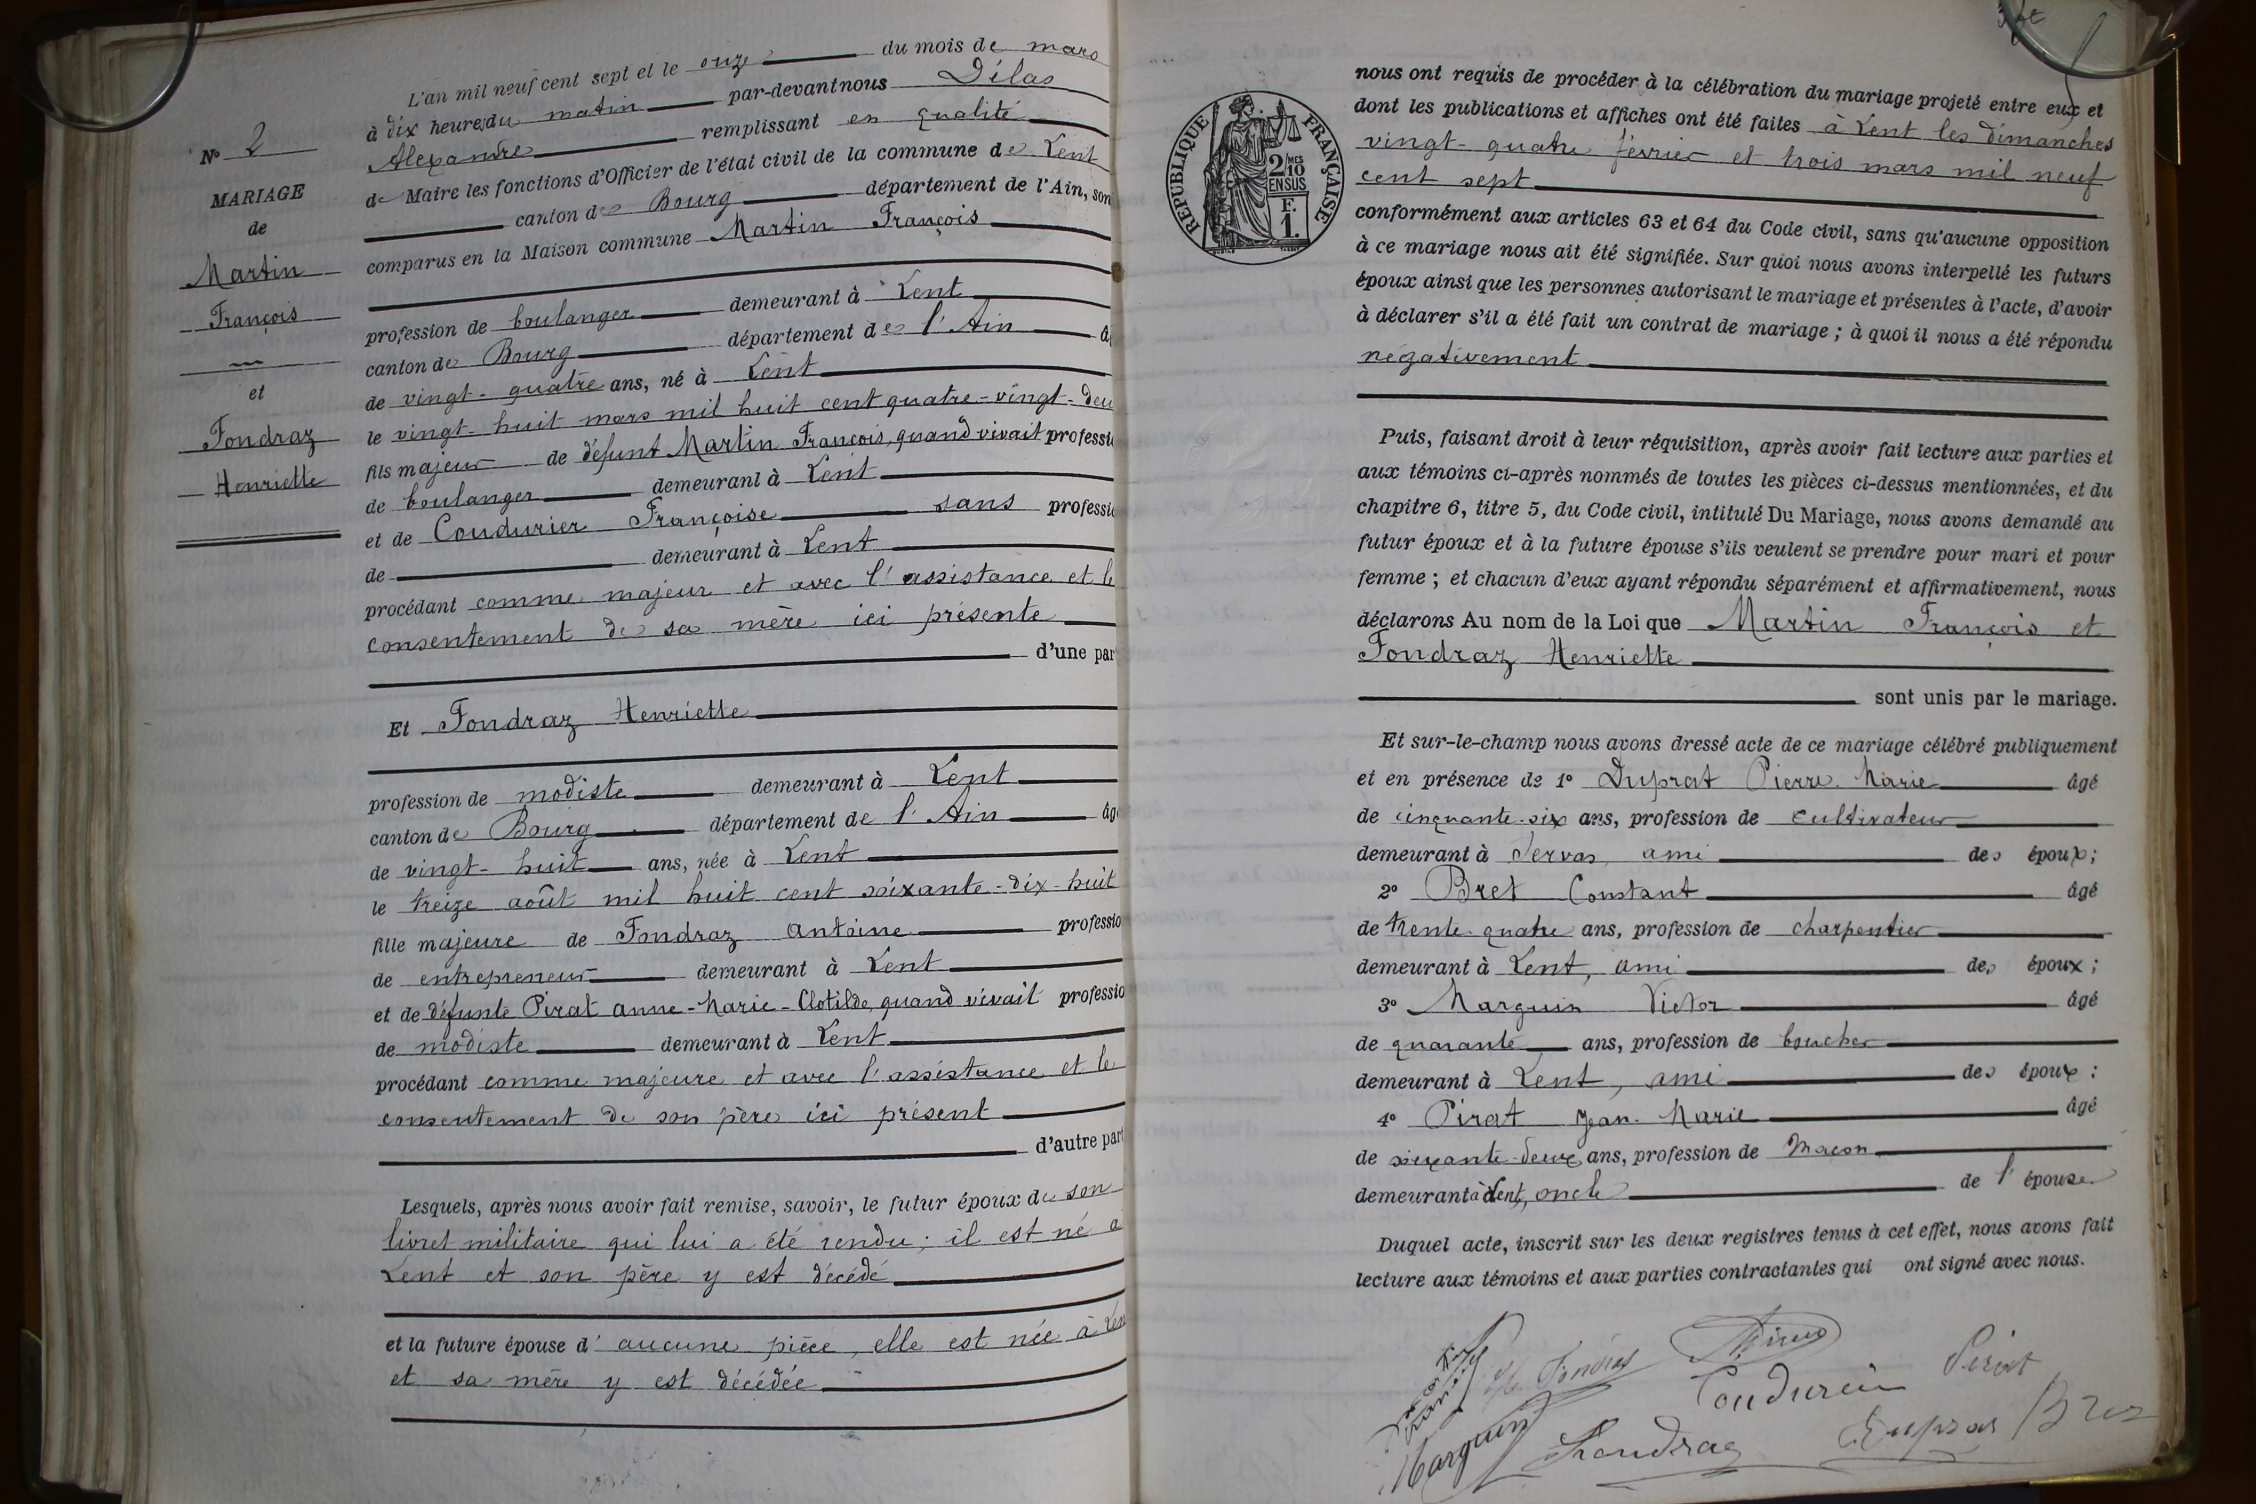 L'an mil neuf cent sept et le onze du mois de mars
à dix heures du matin par-devant nous Délas
Alexandre remplissant en qualité
de Maire les fonctions d'Officier de l'état civil de la commune de Lent
canton de Bourg département de l'Ain, son
comparus en la Maison commune Martin François
profession de boulanger demeurant à Lent
canton de Bourg département de l'Ain â
de vingt-quatre ans, né à Lent
le vingt-huit mars mil huit cent quatre-vingt-deu
fils majeur de défunt Martin François, quand vivait professi
de boulanger demeurant à Lent
et de Coudurier Françoise sans professi
de demeurant à Lent
procédant comme majeur et avec l'assistance et le
consentement de sa mère ici présente
d'une par
Et Fondraz Henriette
profession de modiste demeurant à Lent
canton de Bourg département de l'Ain âg
de vingt-huit ans, née à Lent
le treize août mil huit cent soixante-dix-huit
fille majeure de Fondraz Antoine professio
de entrepreneur demeurant à Lent
et de défunte Pirat Anne-Marie-Clotilde, quand vivait professio
de modiste demeurant à Lent
procédant comme majeure et avec l'assistance et le
consentement de son père ici présent
d'autre part
Lesquels, après nous avoir fait remise, savoir, le futur époux de son
livret militaire qui lui a été rendu; il est né à
Lent et son père y est décédé
et la future épouse d'aucune pièce, elle est née à Len
et sa mère y est décédée
N° 2
MARIAGE
de
Martin
François
et
Fondraz
Henriette
RÉPUBLIQUE FRANÇAISE
2/10 MES
EN SUS
F.
1.
nous ont requis de procéder à la célébration du mariage projeté entre eux et
dont les publications et affiches ont été faites à Lent les dimanches
vingt-quatre février et trois mars mil neuf
cent sept
conformément aux articles 63 et 64 du Code civil, sans qu'aucune opposition
à ce mariage nous ait été signifiée. Sur quoi nous avons interpellé les futurs
époux ainsi que les personnes autorisant le mariage et présentes à l'acte, d'avoir
à déclarer s'il a été fait un contrat de mariage; à quoi il nous a été répondu
négativement
Puis, faisant droit à leur réquisition, après avoir fait lecture aux parties et
aux témoins ci-après nommés de toutes les pièces ci-dessus mentionnées, et du
chapitre 6, titre 5, du Code civil, intitulé Du Mariage, nous avons demandé au
futur époux et à la future épouse s'ils veulent se prendre pour mari et pour
femme; et chacun d'eux ayant répondu séparément et affirmativement, nous
déclarons Au nom de la Loi que Martin François et
Fondraz Henriette
sont unis par le mariage.
Et sur-le-champ nous avons dressé acte de ce mariage célébré publiquement
et en présence de 1° Duprat Pierre-Marie âgé
de cinquante-six ans, profession de cultivateur
demeurant à Servas, ami des époux;
2° Bret Constant âgé
de trente-quatre ans, profession de charpentier
demeurant à Lent, ami des époux;
3° Marguin Victor âgé
de quarante ans, profession de boucher
demeurant à Lent, ami des époux;
4° Pirat Jean-Marie âgé
de soixante-deux ans, profession de Maçon
demeurant à Lent, oncle de l'épouse
Duquel acte, inscrit sur les deux registres tenus à cet effet, nous avons fait
lecture aux témoins et aux parties contractantes qui ont signé avec nous.
Pirat
Coudurier
Marguin
Fondraz
Duprat Bret